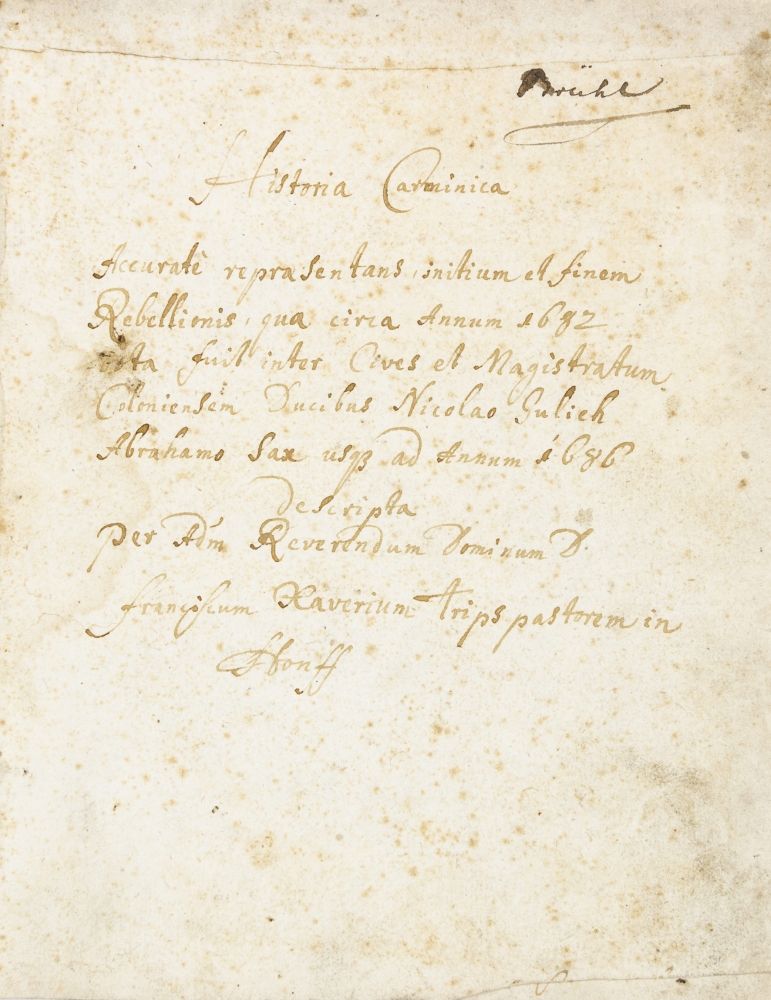 Brühl
Historia Carminica
Accuratè repræsentans, initium et finem
Rebellionis, qua circa Annum 1682
orta fuit inter Cives et Magistratum
Coloniensem Ducibus Nicolao Gulich
Abrahamo Sax usq3 ad Annum 1686
descripta
per Adm Reverendum Dominum D.
Franciscum Xaverium Trips pastorem in
Honff